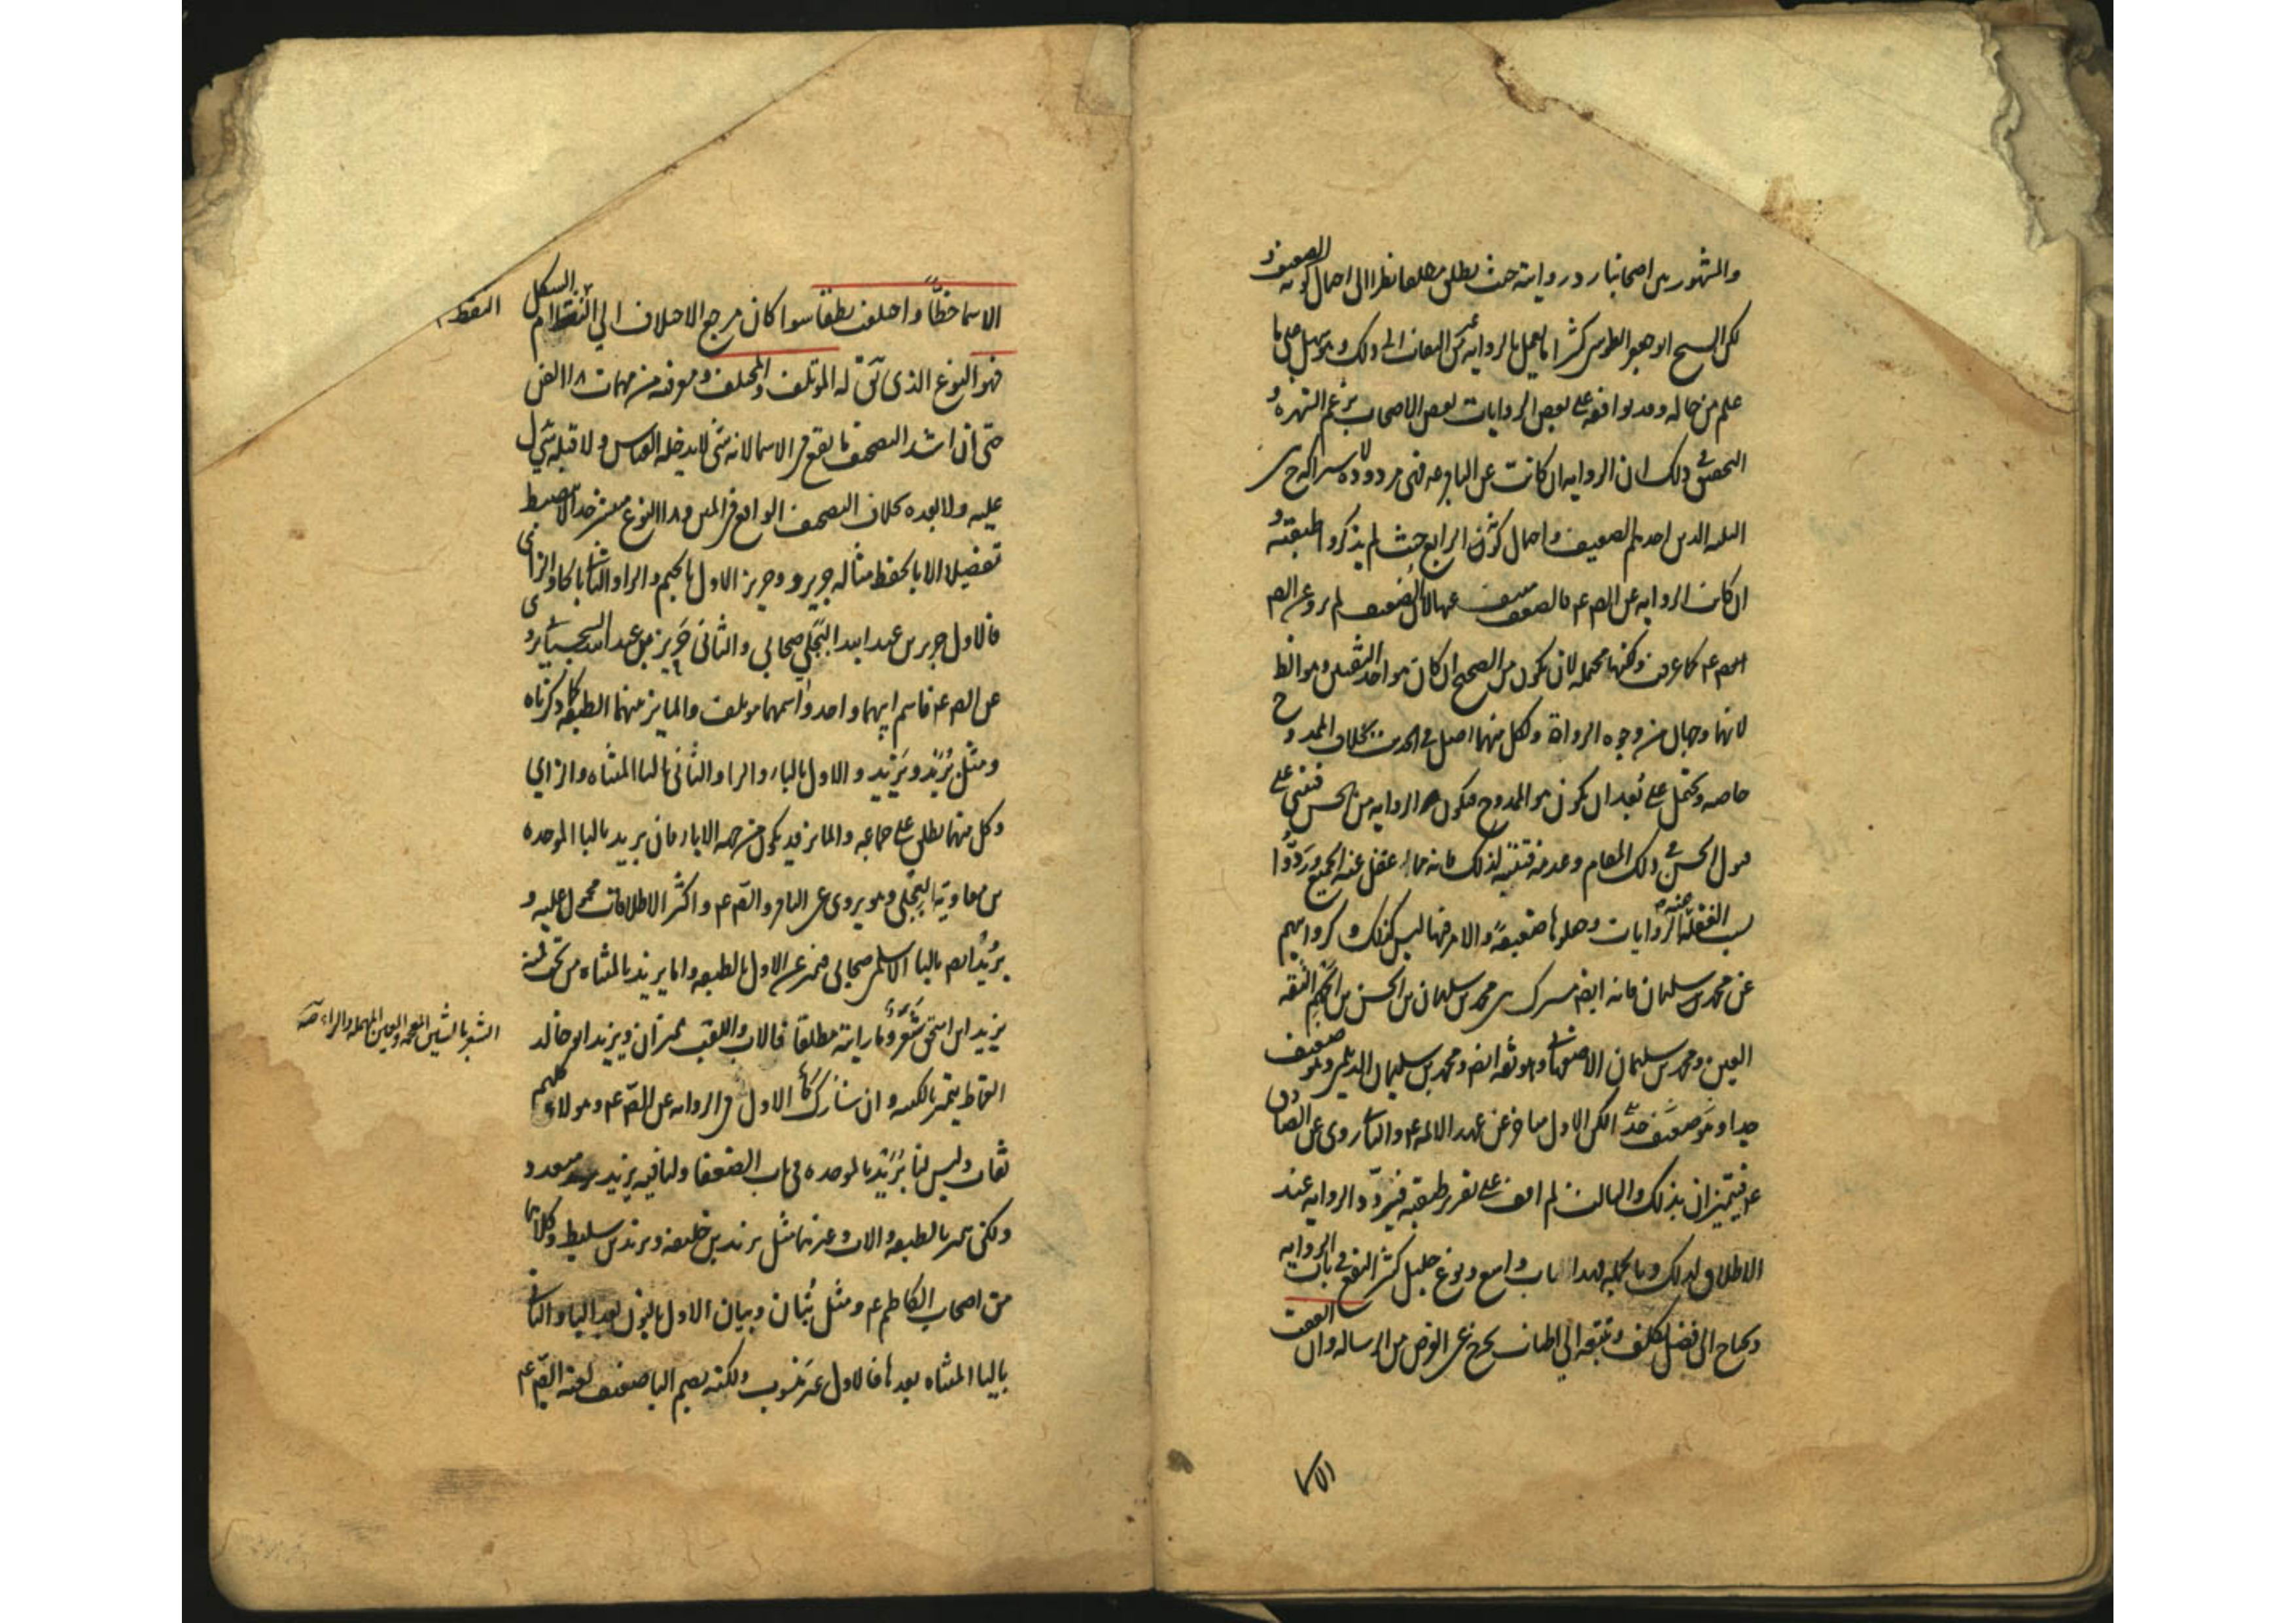 والمشهور بين اصحابنا رد روايته حيث يطلق مطلقا نظرا الى احتمال كونه الضعيف و
لكن الشيخ ابو جعفر الطوسي كثيرا ما يعمل بالرواية من غير التفات الى ذلك وهو سهل على ما
علم من حاله وقد يوافقه على بعض الروايات بعض الاصحاب بزعم الشهرة و
التحقيق في ذلك ان الرواية ان كانت عن الباقر عم فهي مردودة لاشتراكه ح بين
الثلثة الذين احدهم الضعيف واحتمال كونه الرابع حيث لم يذكروا طبقته و
ان كانت الرواية عن الص عم فالضعيف منتف عنها لان الضعيف لم يرو عن الص
الص عم كما عرفت ولكنها محتملة لان يكون من الصحيح ان كان هو احد الثقتين وهو الظ
لانهما وجهان من وجوه الرواة ولكل منهما اصل في الحديث بخلاف الممدوح
خاصة ويحتمل على بعد ان يكون هو الممدوح فيكون الرواية من الحسن فتبنى على
قبول الحسن في ذلك المقام وعدمه فتنبه لذلك فانه مما غفل عنه الجميع وردوا
بسبب الغفلة عنه الروايات وجعلوها ضعيفة والامر فيها ليس كذلك وكروايتهم
عن محمد بن سليمان فانه ايضا مشترك بين محمد بن سليمان بن الحسن بن الجهم الثقة
العين ومحمد بن سليمان الاصفهاني وهو ثقة ايضا ومحمد بن سليمان الديلمي وهو ضعيف
جدا وهو ضعيف جدا لكن الاول متاخر عن عهد الائمة عم والثاني روى عن الصادق
عم فيتميزان بذلك والثالث لم اقف على تقرير طبقته فترد الرواية عند
الاطلاق لذلك وبالجملة فهذا باب واسع ونوع جليل كثير النفع في باب الرواية
ويحتاج الى فضل تكلف وتتبعه الى اطناب يخرج عن الغرض من الرسالة وان اتفقت
الاسما
الاسما خطًّا واختلفت نطقا سوا كان مرجع الاختلاف الى النقط ام الشكل
النقط
فهو النوع الذي يق له المؤتلف والمختلف ومعرفته من مهمات هذا الفن
حتى ان اشد التصحيف ما يقع في الاسما لانه شي لا يدخله القياس ولا قبله شي يدل
عليه ولا بعده بخلاف التصحيف الواقع في المتن وهذا النوع منتشر جدا لا يضبط
تفصيلا الا بالحفظ مثاله جرير وحريز الاول بالجيم والرا والثاني بالحا والزاى
فالاول جرير بن عبد الله البجلي صحابي والثاني حريز بن عبد الله السجستاني يروى
عن الص عم فاسم ابيهما واحد واسمهما مؤتلف والمايز بينهما الطبقة كما ذكرناه
ومثل بُرَيْد ويَزِيد والاول بالبا والرا والثاني باليا المثناه والزاي
وكل منهما يطلق على جماعة والمايز قد يكون من جهة الابا فان بريد بالبا الموحده
بن معاوية البجلي وهو يروى عن الباقر والصم عم واكثر الاطلاقات محمول عليه و
بُرَيد ايض بالبا الاسلمي صحابي فيتميز عن الاول بالطبقة واما يزيد بالمثناه من تحت فمنه
يزيد ابن اسحق شَعَر وما رايته مطلقا فالاب واللقب مميزان ويزيد ابو خالد
الشعر بالشين المعجمة والعين المهملة والراء صح
القماط يتميز بالكنية وان شارك الاول في الرواية عن الصم عم وهولاء كلهم
ثقات وليس لنا بريد بالموحده في باب الضعفا ولنا فيه يزيد متعدد
ولكن يتميز بالطبقة والاب وغيرهما مثل يزيد بن خليفة ويزيد بن سليط وكلاهما
من اصحاب الكاظم عم ومثل بُنان وبيان الاول بالنون بعد البا والثاني
باليا المثناه بعدها فالاول غير منسوب ولكنه بضم البا ضعيف لعنه الصم عم